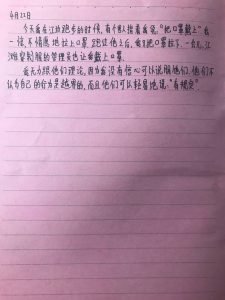 4月22日
今天我在江边跑步的时候，有个男人指着我说，“把口罩戴上”我一怔，不情愿地拉上口罩，跑过他之后，我又把口罩拉下，一会儿，江滩穿制服的管理员也让我戴上口罩。
我无力跟他们理论，因为我没有信心可以说服他们，他们不认为自己的行为是越界的，而且他们可以轻易地说：“有规定”。